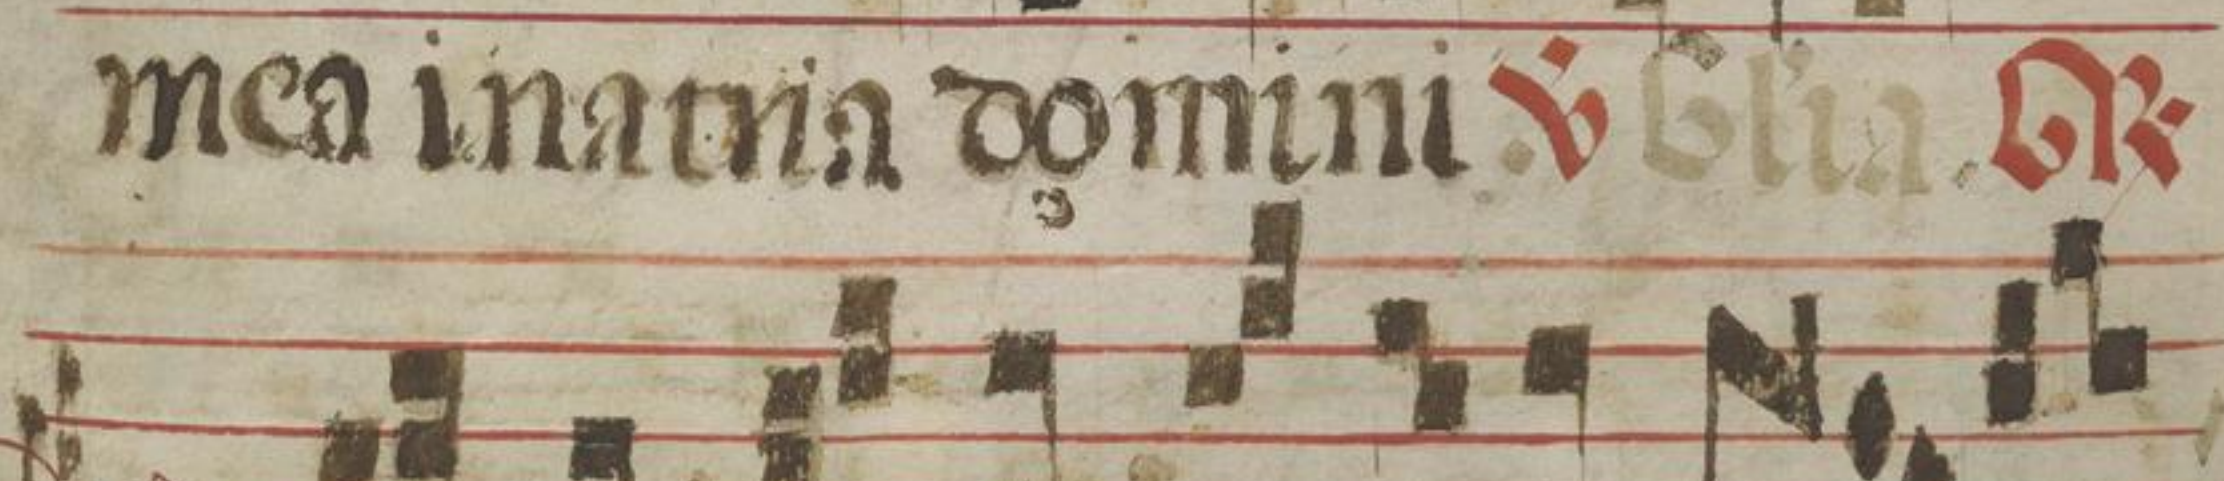 mea in atria domini ℣ Gl'ia. GR